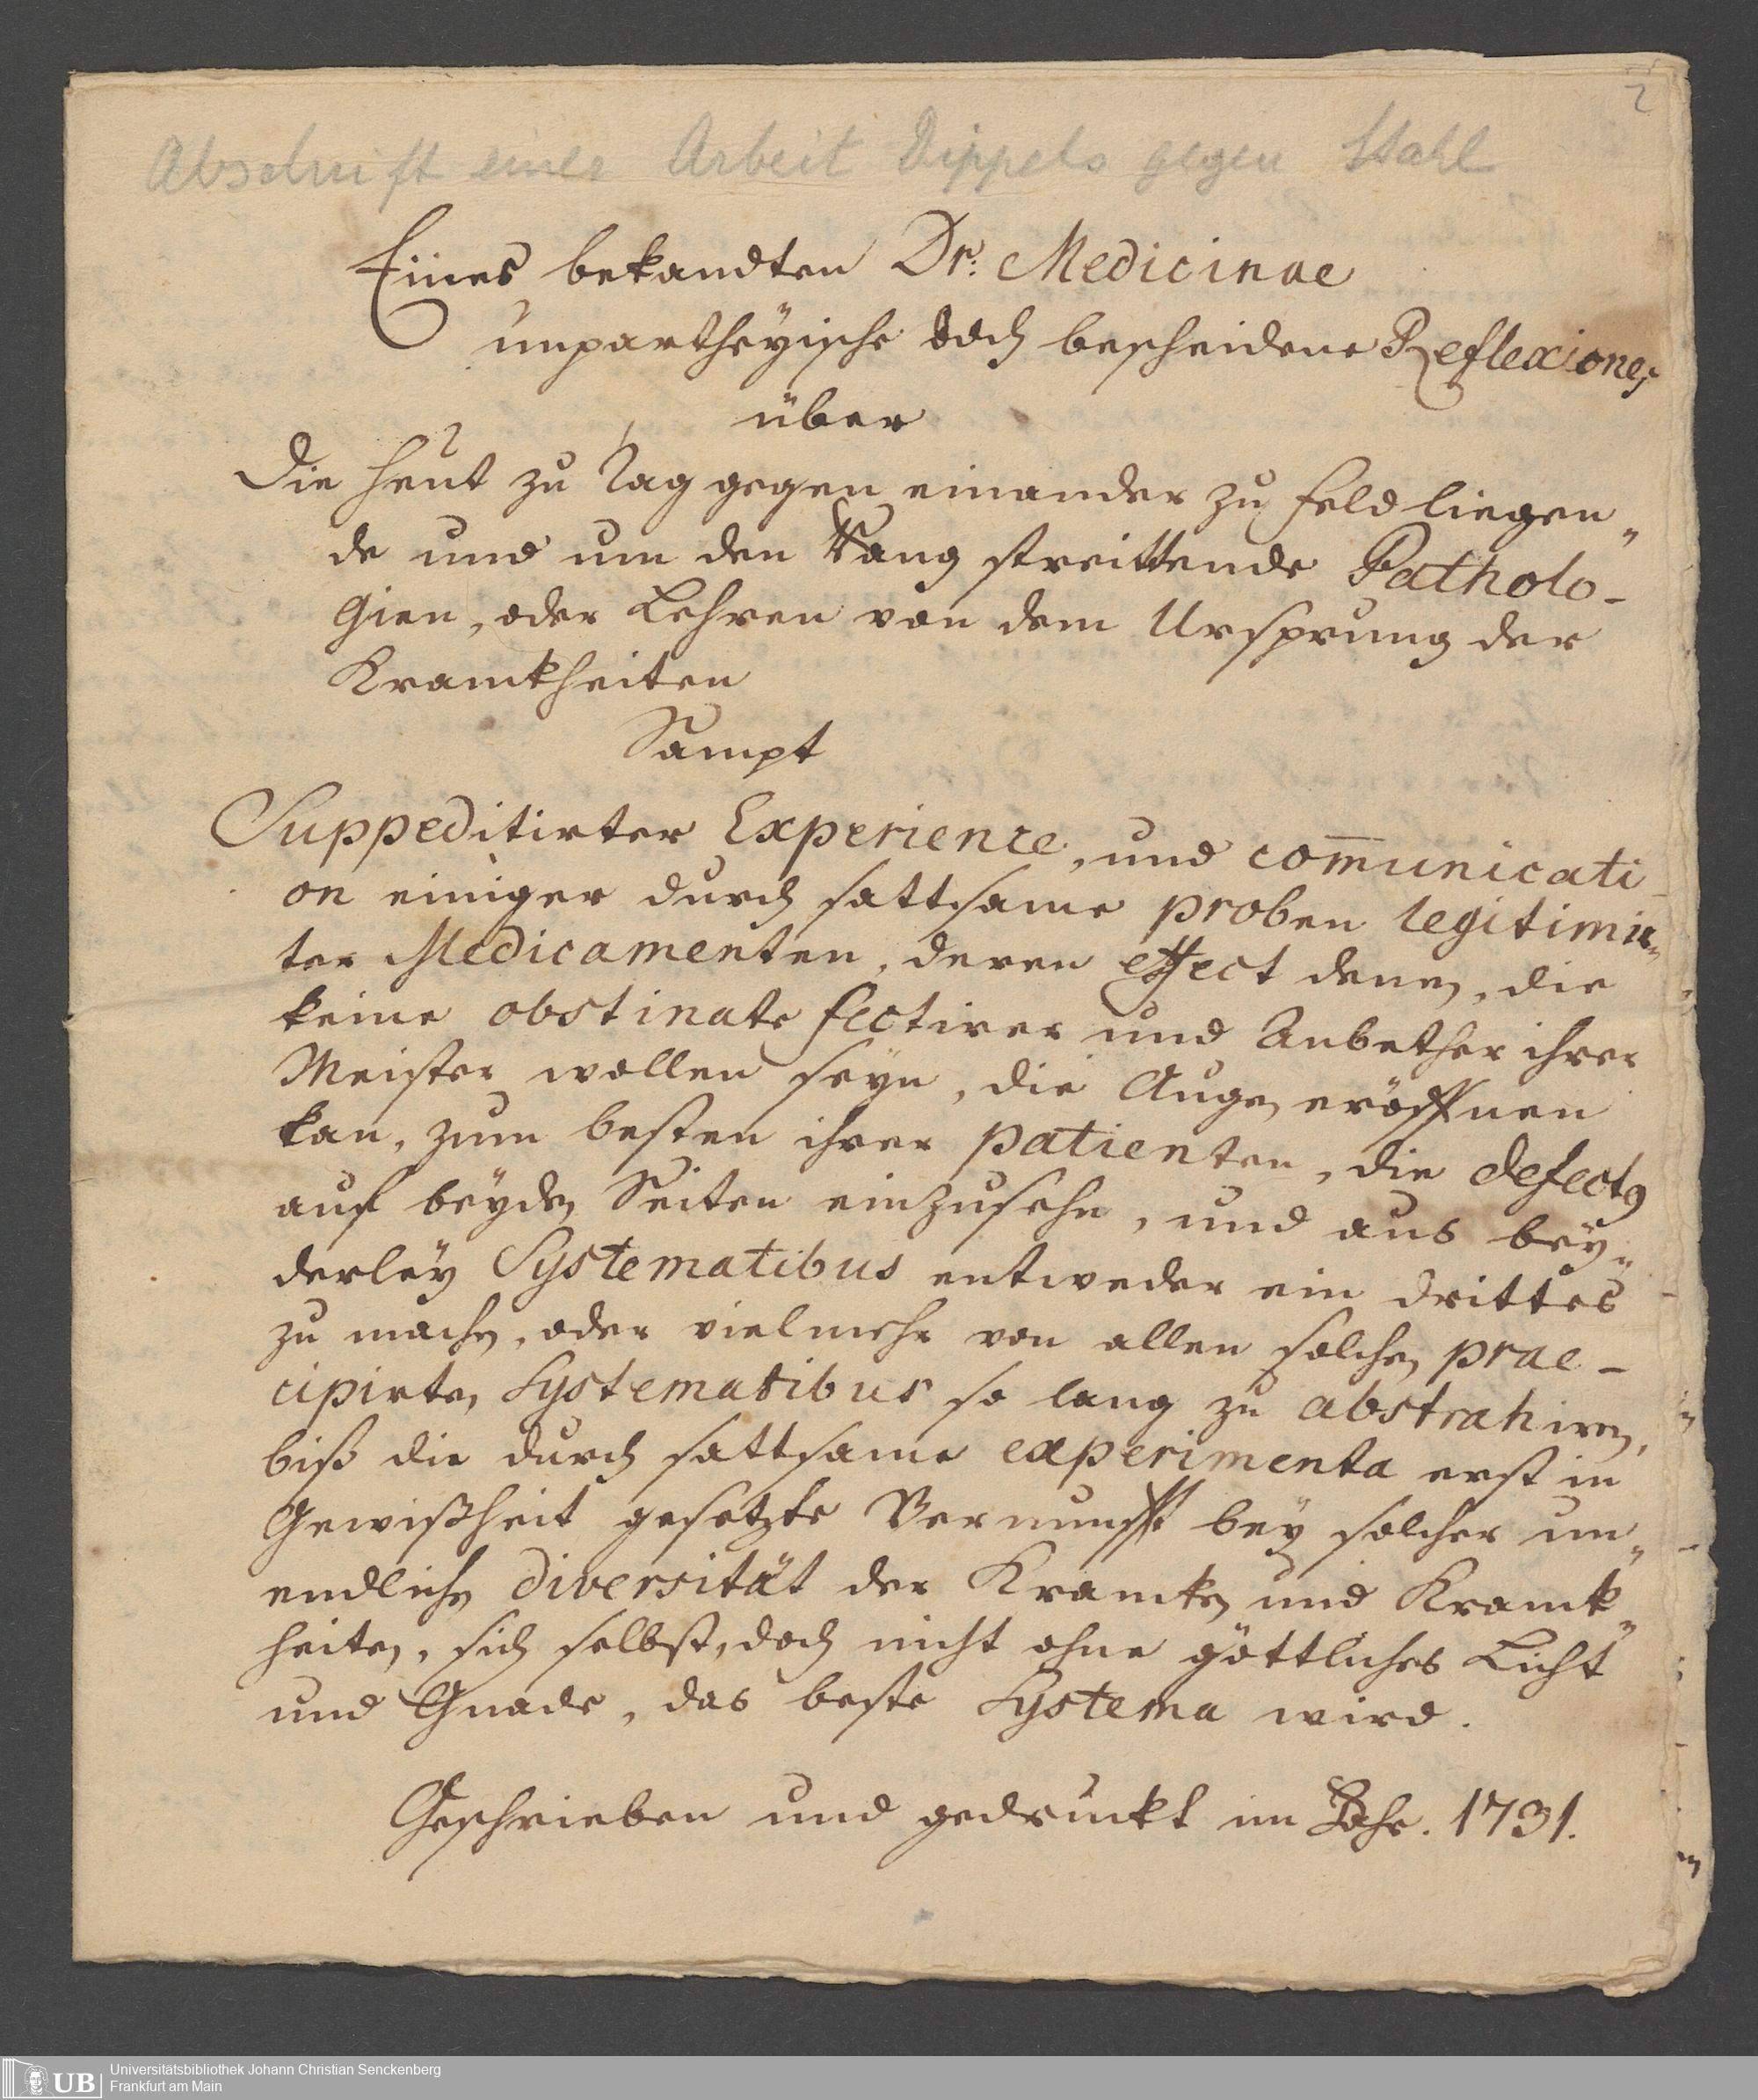 2
Abschrift einer Arbeit Dippels gegen Stahl
Eines bekandten Dr. Medicinae
unpartheyische doch bescheidene Reflexiones
über
Die heut zu Tag gegen einander zu feld liegen„
de und um den Rang streittende Patholo-
gien, oder Lehren von dem Ursprung der
Kranckheiten
Sampt
Suppeditirter Experience, und com̅unicati-
on einiger durch sattsame proben legitimir„
ter Medicamenten, deren effect denen, die
keine obstinate sectirer und Anbether ihrer
Meister wollen seyn, die Augen eröffnen
kan, zum besten ihrer patienten, die defectus
auf beyden Seiten einzusehn, und aus bey„
derley Systematibus entweder ein drittes
zu machen, oder vielmehr von allen solchen prae-
cipirten Systematibus so lang zu abstrahiren,
biß die durch sattsame experimenta erst in
Gewißheit gesetzte Vernunfft bey solcher un„
endlichen diversität der Krancken und Kranck„
heiten, sich selbst, doch nicht ohne göttliches Licht
und Gnade, das beste Systema wird.
Geschrieben und gedruckt im Jahr. 1731.
UB
Universitätsbibliothek Johann Christian Senckenberg
Frankfurt am Main